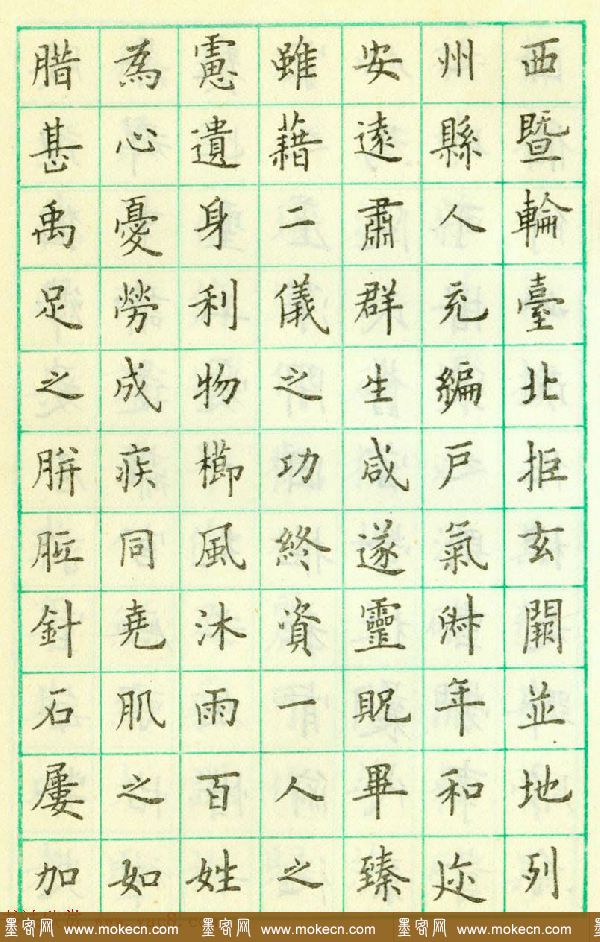 西暨輪臺北拒玄闕並地列
州縣人充編戶氣淑年和迩
安遠肅群生咸遂靈貺畢臻
雖藉二儀之功終資一人之
慮遺身利物櫛風沐雨百姓
為心憂勞成疾同堯肌之如
腊甚禹足之胼胝針石屢加
墨客网 www.mokecn.com 墨客网 www.mokecn.com 墨客网 www.mokecn.com